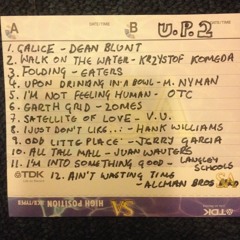 A DATE/TIME B DATE/TIME
U.P.2
1. GALICE - DEAN BLUNT
2. WALK ON THE WATER - KRZYSTOF KOMEDA
3. FOLDING - EATERS
4. UPON DRINKING IN A BOWL - M. NYMAN
5. I'M NOT FEELING HUMAN - OTC
6. EARTH GRID - ZOMES
7. SATELLITE OF LOVE - V.U.
8. I JUST DON'T LIKE...: - HANK WILLIAMS
9. ODD LITTLE PLACE - JERRY GARCIA
10. ALL TALL MALL - JUAN WAUTERS
11. I'M INTO SOMETHING GOOD - LANGLEY SCHOOLS
12. AIN'T WASTING TIME - ALLMAN BROS
TDK
HIGH POSITION
SA
TDK